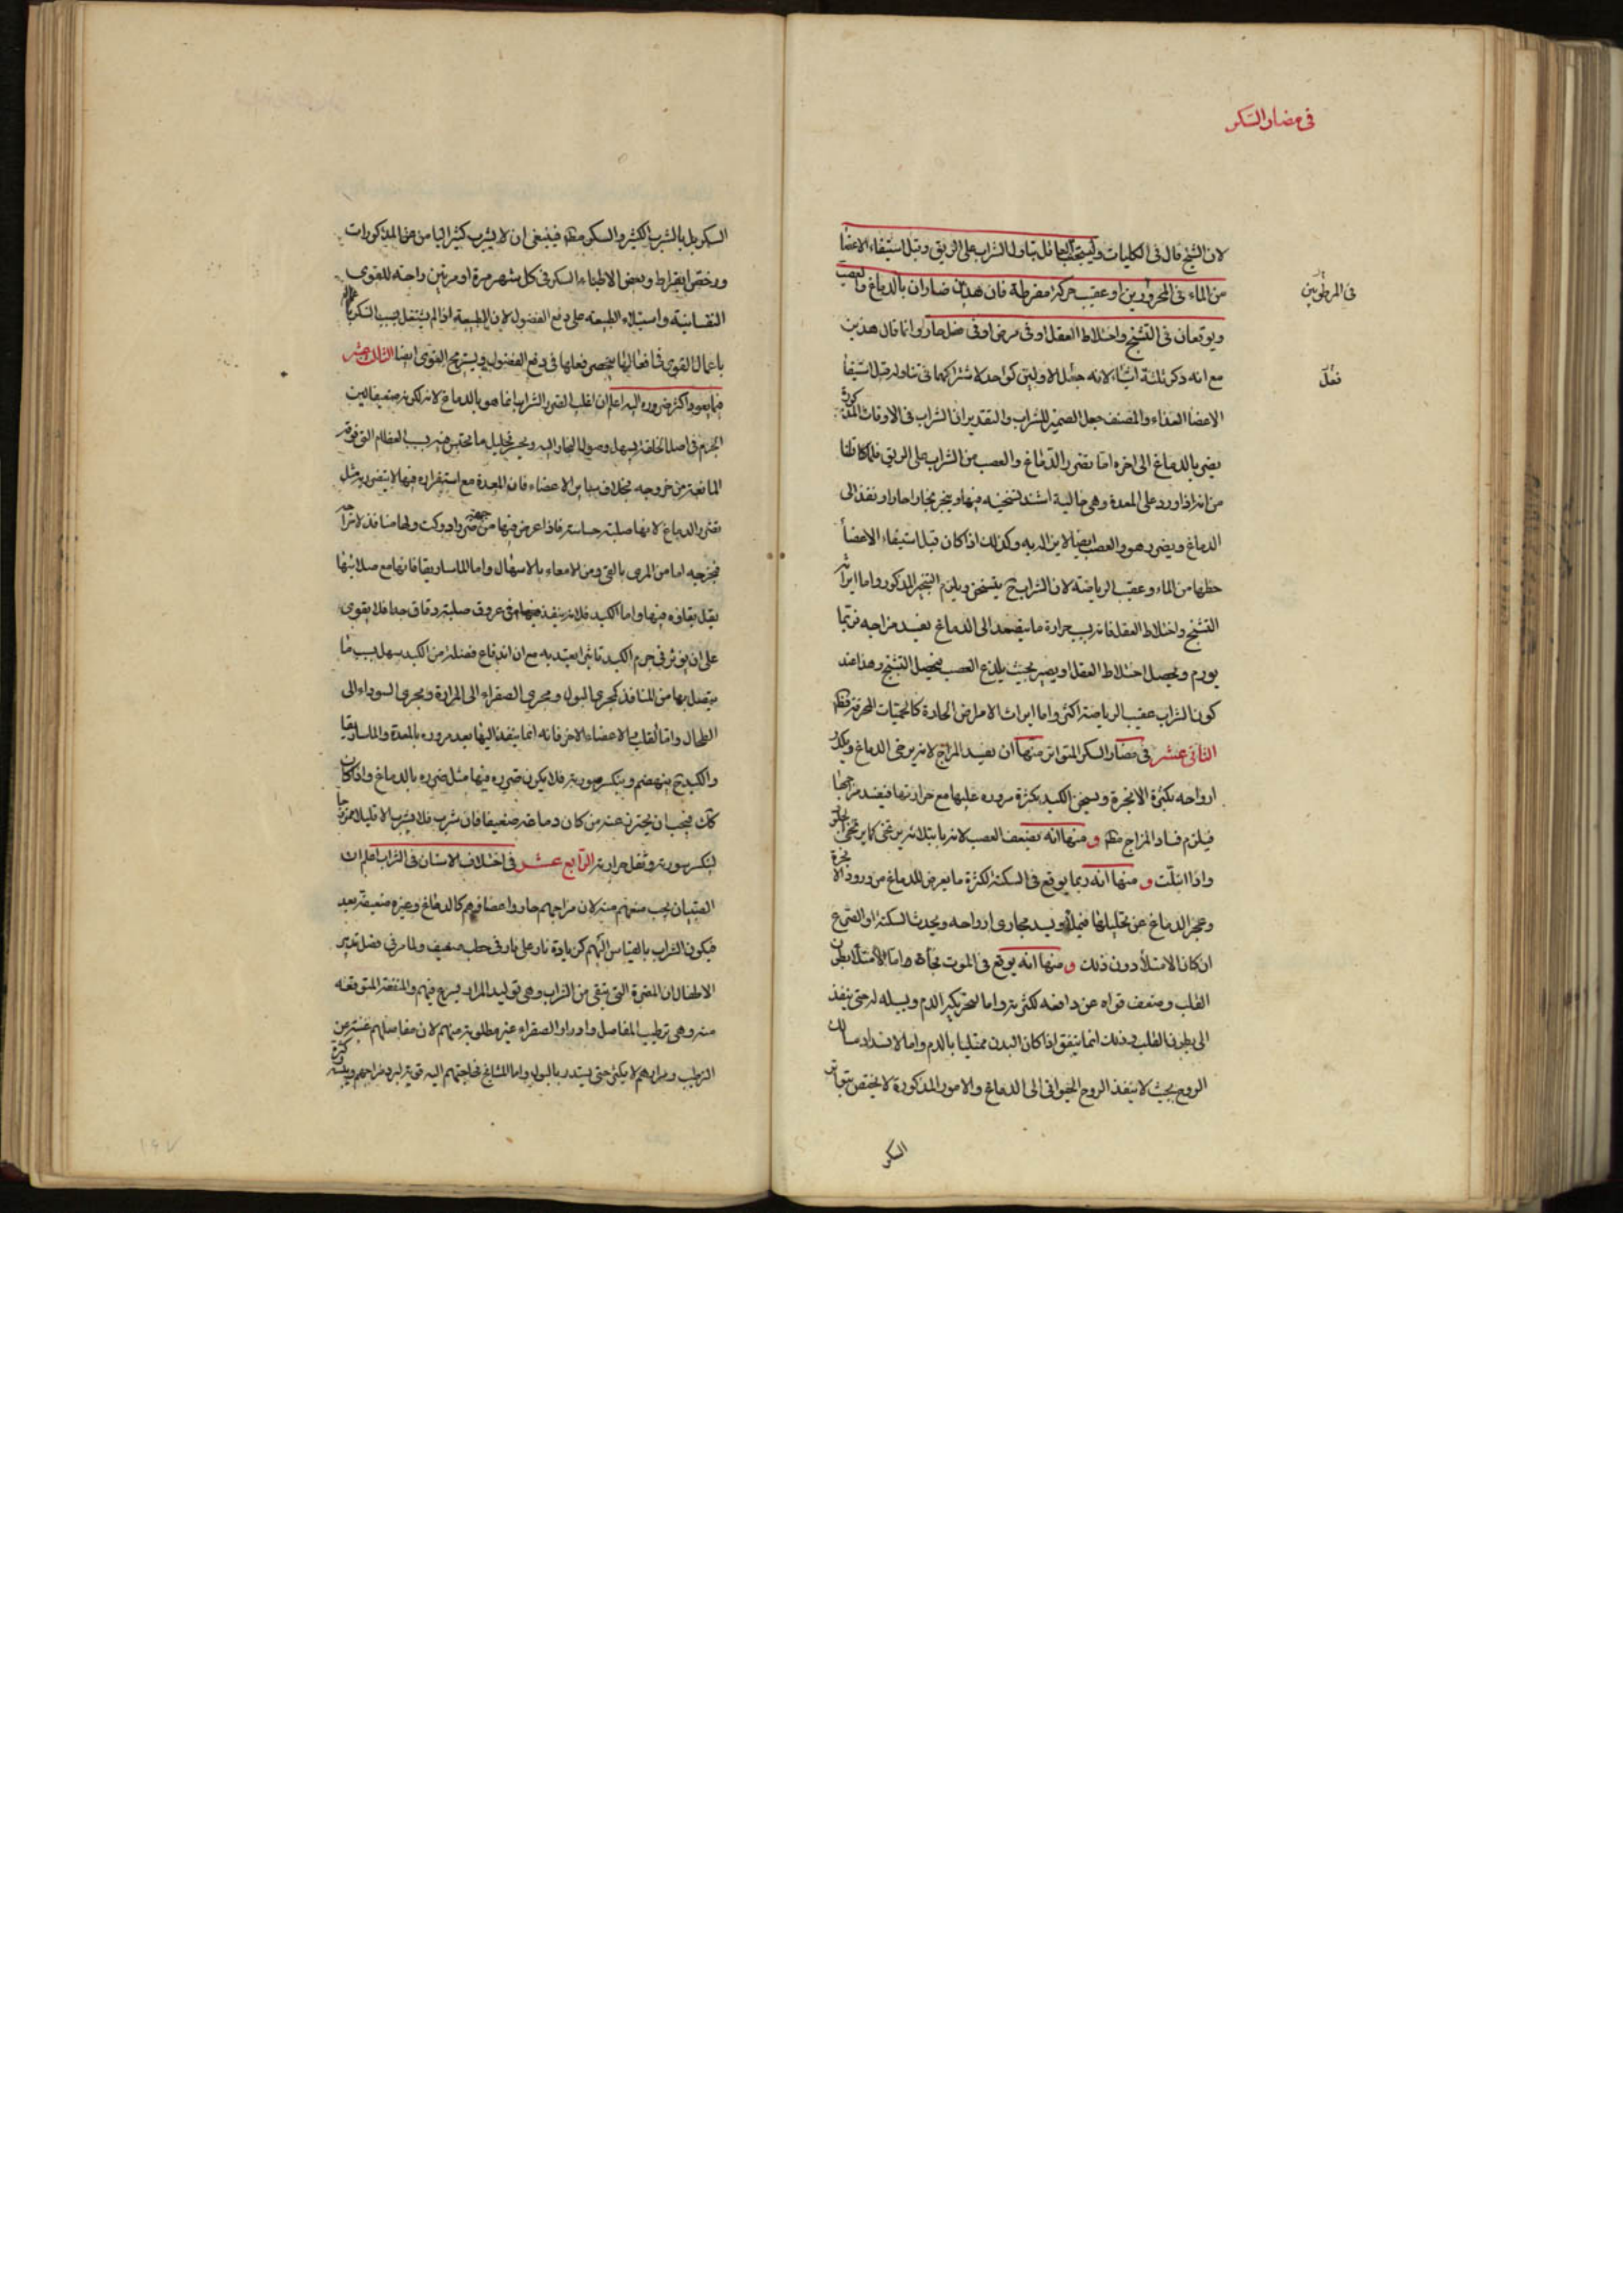 فى مضار السكر
لان الشيخ قال فى الكليات وليجتنب العاقل تناول الشراب على الريق وقبل استيفاء الاعضا
فى المرطوبين
من الماء فى المحرورين او عقيب حركة مفرطة فان هذين ضاران بالدماغ والعصب
ويوقعان فى التشنج واختلاط العقل او فى مرض او فى فضل حار وانما قال هذين
فعل
مع انه ذكر ثلثة اشياء لانه جعل الاولين كواحد لاشتراكهما فى تناوله قبل استيفا
الاعضا الغذاء والمصنف جعل الضمير للشراب والتقدير ان الشراب فى الاوقات المذكورة
يضر بالدماغ الى اخره اما تضرر الدماغ والعصب من الشراب على الريق فلما قلنا
من انه اذا ورد على المعدة وهى خالية اشتد تسخينه فيها ويتبخر بخارا حارا ونفذ الى
الدماغ ويضر هو والعصب ايضا لاين اليه وكذلك اذا كان قبل استيفاء الاعضأ
حظها من الماء وعقيب الرياضة لان الشراب ح يتسخن ويلزم التبخر المذكور واما ايراثه
التشنج واختلاط العقل فانه بسبب حرارة ما يتصعد الى الدماغ يفسد مزاجه فربما
يورم ويحصل اختلاط العقل او يصير بحيث يلذع العصب فيحصل التشنج وهذا عند
كون الشراب عقيب الرياضة اكثر واما ايراث الامراض الحادة كالحميات المحرقة فظ
الثانى عشر فى مضار السكر المتواتر منها ان يفسد المزاج لانه يرخى الدماغ ويكدر
ارواحه بكثرة الابخرة ويسخن الكبد بكثرة مروره عليها مع حرارتها فيفسد مزاجها
فيلزم فساد المزاج مط و منها انه يضعف العصب لانه يا يرخى كما يرخى
واذا ابتلت و منها انه ربما يوقع فى السكتة لكثرة ما يعرض للدماغ من ورود الابخرة
وعجز الدماغ عن تحليلها فيملأ ويسد مجارى ارواحه ويحدث السكتة او الصرع
ان كان الامتلأ دون ذلك و منها انه يوقع فى الموت فجأة واما لامتلأ بطن
القلب وضعف قواه عن دافعه لكثرته واما لتحريكه الدم وسيله له حتى ينفذ
الى بطون القلب وذلك انما يتفق اذا كان البدن ممتليا بالدم واما لانسداد مسالك
الروح بحيث لا ينفذ الروح الحيوانى الى الدماغ والامور المذكورة لا يختص بتواتر
السكر
السكر بل بالشرب الكثير والسكر مط فينبغى ان لا يشرب كثيرا ليامن من المذكورات
ورخص ابقراط وبعض الاطباء السكر فى كل شهر مرة او مرتين راحة للقوى
النفسانية واستيلاء الطبيعة على دفع الفضول لان الطبيعة اذا لم يشتغل بسبب السكر
باعمال القوى فى افعالها ينحصر فعلها فى دفع الفضول ويستريح القوى ايضا الثالث عشر
فيما يعود اكثر ضرره اليه اعلم ان اغلب الضرر الشراب انما هو بالدماغ لانه لكونه ضعيفا لين
الجرم فى اصل الخلقة يسهل وصول البخار اليه ويعسر تحليل ما يحتبس فيه بسبب العظام التى فوقه
المانعة من خروجه بخلاف ساير الاعضاء فان المعدة مع استقراره فيها لا يتضرر به مثل
تضرر الدماغ لانها صلبة حساسة فاذا عرض فيها من جهته ضرر ادركت ولها منافذ
فيخرجه اما من المرى بالقئ ومن الامعاء بالاسهال واما الماساريقا فانها مع صلابتها
يقل بقاؤه فيها واما الكبد فلانه ينفذ فى عروق صلبة دقاق جدا فلا يقوى
على ان يؤثر فى جرم الكبد تاثيرا يعتد به مع ان اندفاع فضلة من الكبد سهل بسبب ما
يتصل بها من المنافذ كمجرى البول ومجرى الصفراء الى المرارة ومجرى السوداء الى
الطحال واما القلب والاعضاء الاخر فانه انما ينفذ اليها بعد مروره بالمعدة والماساريقا
والكبد ح ينهضم وينكسر سورته فلا يكون ضرره فيها مثل ضرره بالدماغ واذا كان
كك فيجب ان يحترز عنه من كان دماغه ضعيفا فان شرب فلا يشرب الا قليلا ممزوجا
لينكسر سورته وتقل حرارته الرابع عشر فى اختلاف الاسنان فى الشراب اعلم ان
الصبيان يجب منعهم منه لان مزاجهم حار واعضاؤهم كالدماغ وغيره ضعيفة بعد
فيكون الشراب بالقياس اليهم كزيادة نار على نار فى حطب ضعيف ولما مر فى فصل تدبير
الاطفال ان المضرة التى تتقى من الشراب وهى توليد المرار يسرع فيهم والمنفعة المتوقعة
منه وهى ترطيب المفاصل وادرار الصفراء غير مطلوبة منهم لان مفاصلهم غنية عن
الترطيب ومرارهم لا يكثر حتى يستدر بالبول واما المشايخ فحاجتهم اليه قوية لبرد مزاجهم